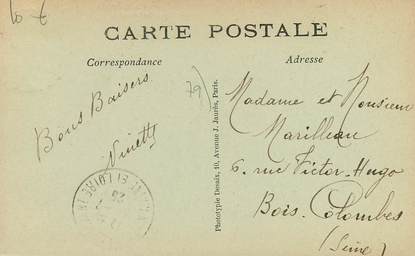 10 €
CARTE POSTALE
Correspondance
Adresse
79
Bons Baisers
Ninette
Phototypie Desaix, 10, Avenue J. Jaurès, Paris.
Madame et Monsieur
Marilleau
6. rue Victor-Hugo
Bois. Colombes
(Seine)